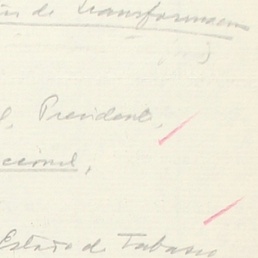 de transformacion
)
l, Presidente,
cional,
Estado de Tabasco